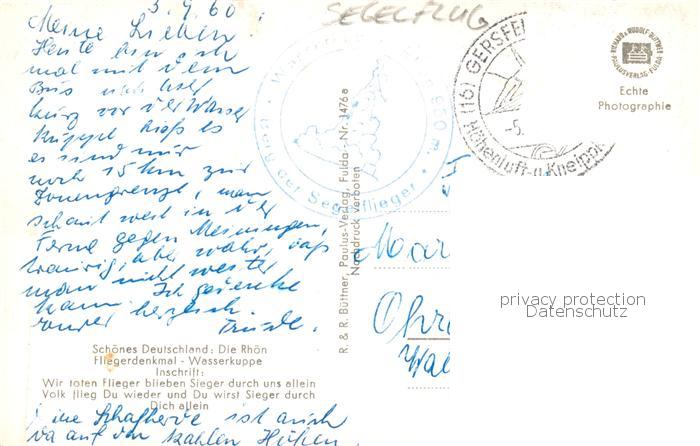 3.9.60
SEGELFLUG
Meine Lieben!
Heute bin ich
mal mit dem
Bus
kurz vor der Wasser
kuppe hieß es
es sind nur
noch 15 km zur
Zonengrenze, man
schaut weit in die
Ferne gegen Meiningen,
traurig, aber wahr, daß
man nicht weiter
kann. Ich gedenke
eurer herzlich.
Trude.
Schönes Deutschland: Die Rhön
Fliegerdenkmal - Wasserkuppe
Inschrift:
Wir toten Flieger blieben Sieger durch uns allein
Volk flieg Du wieder und Du wirst Sieger durch
Dich allein
Eine Schafherde ist auch
da auf den kahlen Höhen.
950 m.
Berg der Segelflieger
R. & R. Büttner, Paulus-Verlag, Fulda - Nr. 1476a
Nachdruck verboten
(16) GERSFE
-5.
Höhenluft-u. Kneipp
RICHARD & RUDOLF BÜTTNER
PAULUSVERLAG FULDA
Echte
Photographie
Mar
Ohr
Wal
privacy protection
Datenschutz